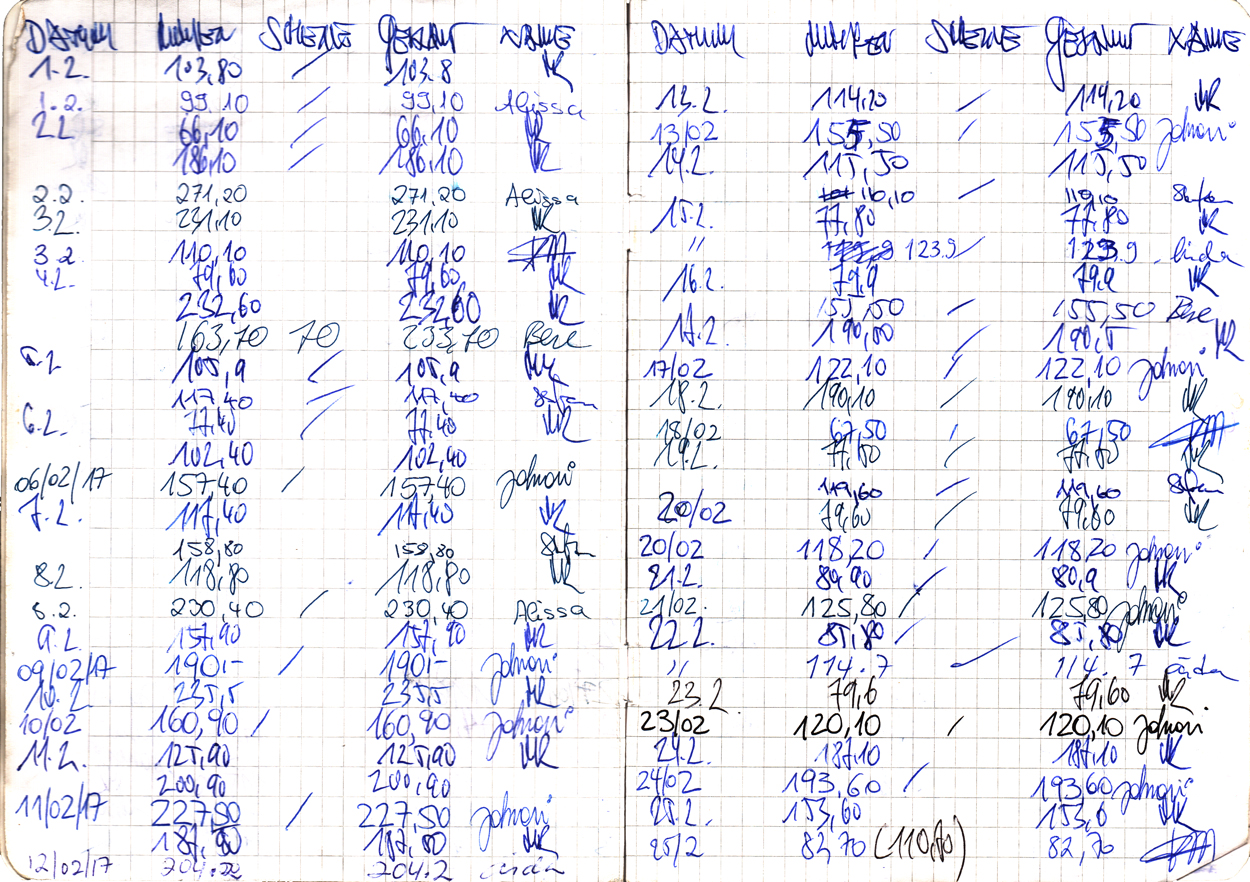 DATUM MÜNZEN SCHEINE GESAMT NAME
1.2. 103,80 / 103.8 MR
1.2. 99.10 / 99,10 Alissa
2.2 66,10 / 66,10 MR
186,10 / 186,10 MR
2.2. 271,20 271,20 Alissa
3.2. 231,10 231,10 MR
3.2. 110,10 110,10
4.2. 79,60 79,60 MR
232,60 232,60 MR
163,70 70 233,70 Bere
5.2 105,9 / 105,9 MR
117,40 / 117,40 Stefan
6.2. 77,40 / 77,40 MR
102,40 102,40
06/02/17 157,40 / 157,40 Johnori
7.2. 117,40 117,40 MR
158,80 158,80 Stefan
8.2. 118,80 118,80 MR
8.2. 230,40 / 230,40 Alissa
9.2 157,90 157,90 MR
09/02/17 190,- / 190,- Johnori
10.2 235,5 235,5 MR
10/02 160,90 / 160,90 Johnori
11.2. 125,90 125,90 MR
200,90 200,90
11/02/17 227,50 / 227,50 Johnori
MR
12/02/17 204.2 Linda
DATUM MÜNZEN SCHEINE GESAMT NAME
13.2. 114,20 / 114,20 MR
13/02 155,50 / 155,50 Johnori
14.2. 115,50 115,50
110,10 / 110,10 Stefan
15.2. 77,80 77,80 MR
" 123.9 / 123.9 Linda
16.2. 79,9 79,9 MR
155,50 / 155,50 Bere
17.2. 190,50 / 190,5 MR
17/02 122,10 / 122,10 Johnori
18.2. 190,10 / 190,10 MR
18/02 67,50 / 67,50
19.2. 77,50 / 77,50 MR
119,60 / 119,60 Stefan
20/02 79,60 / 79,60 MR
20/02 118,20 / 118,20 Johnori
21.2. 80,90 / 80,9 MR
21/02. 125,80 / 125,80 Johnori
22.2. 85,80 / 85,80 MR
" 114.7 / 114.7 Linda
23.2 79,6 79,60 MR
23/02 120,10 / 120,10 Johnori
24.2. 187,10 187,10 MR
24/02 193,60 / 193,60 Johnori
25.2. 153,60 153,6 MR
25/2 82,70 (110,70) 82,70